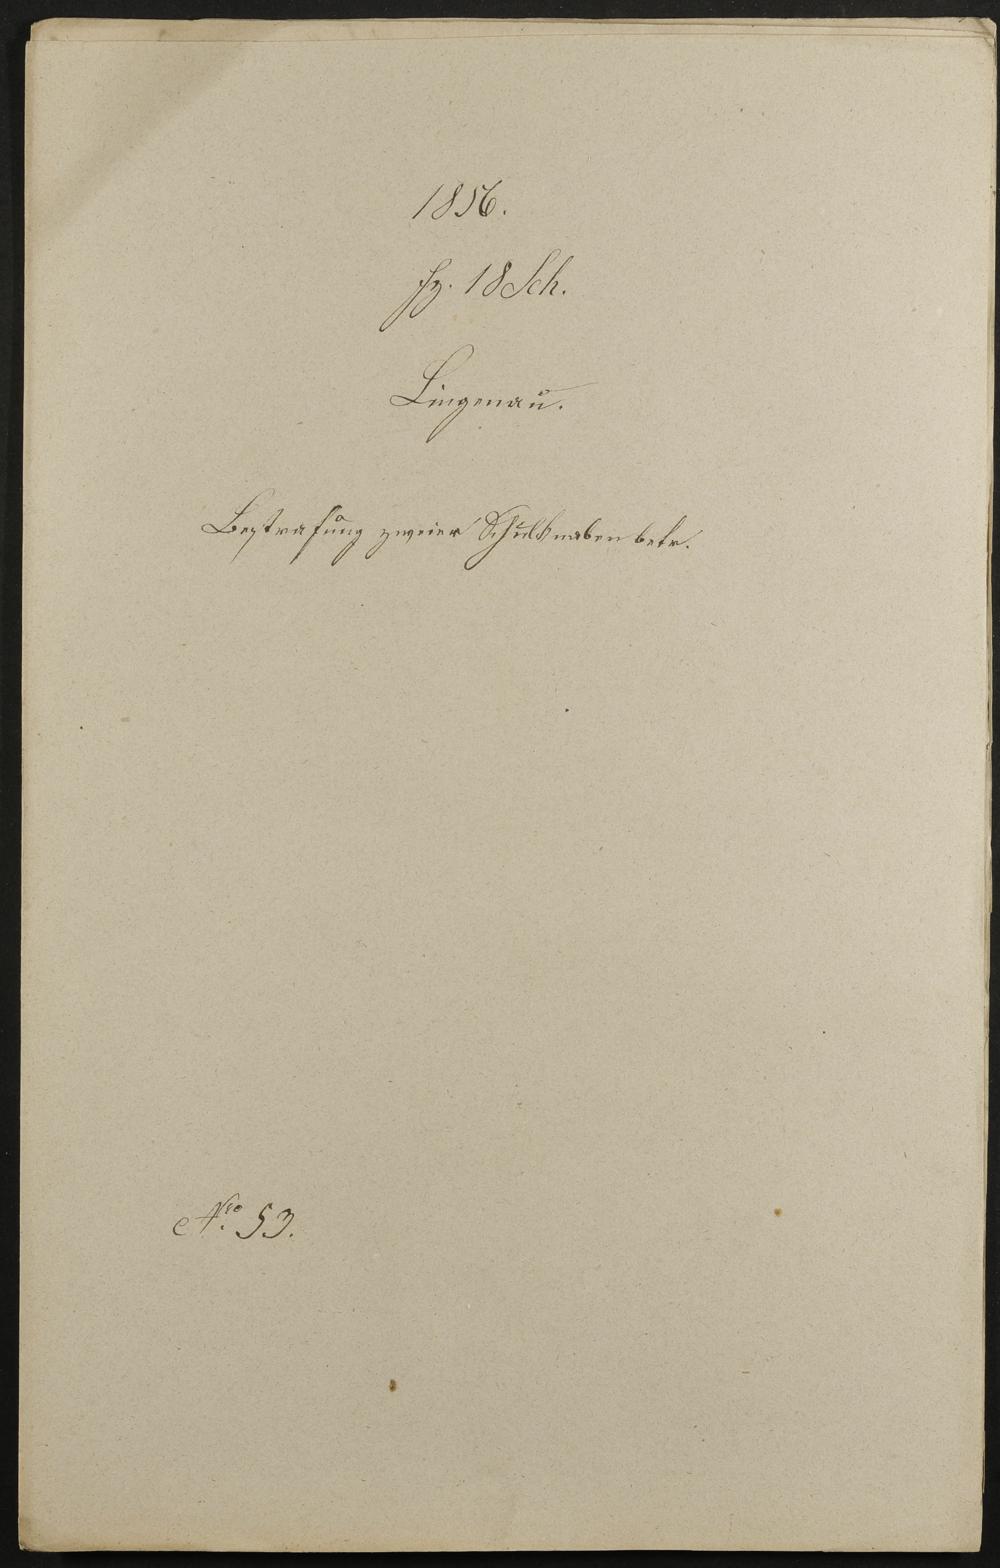 1856.
fz. 18 Sch.
Lingenau.
Bestrafung zweier Schulknaben betr.
No. 53.